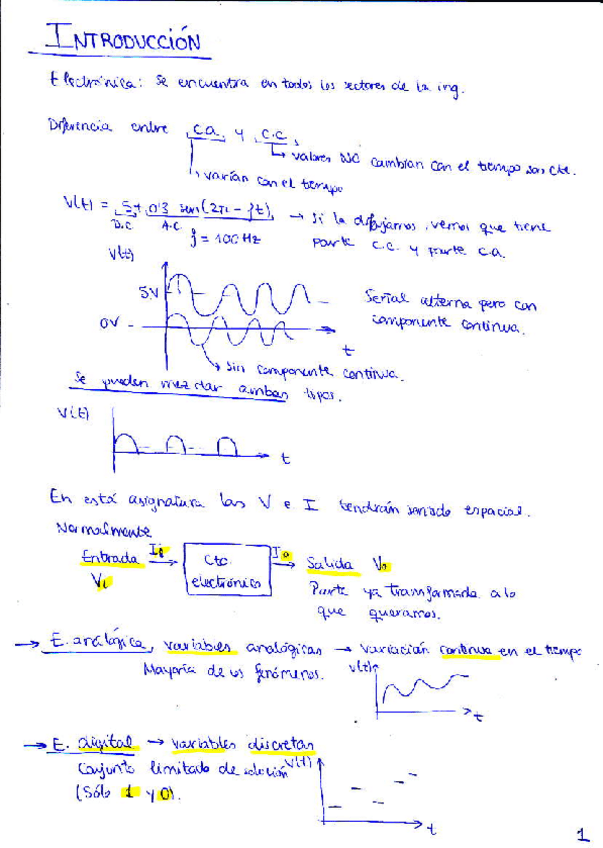 INTRODUCCIÓN
Electrónica: Se encuentra en todos los sectores de la ing.
Diferencia entre c.a. y c.c.
valores NO cambian con el tiempo son cte.
varían con el tiempo
V(t) = 5 + 0'3 sen(2π - ft) → Si la dibujamos, vemos que tiene
D.C A.C. parte c.c. y parte c.a.
f = 100 Hz
V(t)
5V
Señal alterna pero con
componente continua.
0V
t
Sin componente continua.
Se pueden mezclar ambos tipos.
V(t)
t
En está asignatura las V e I tendrán sentido espacial.
Normalmente
Entrada Ii → Cto. electrónico Io → Salida Vo
Vi
Parte ya transformada a lo
que queramos.
→ E. analógica, variables analógicas → variación continua en el tiempo
Mayoría de los fenómenos.
v(t)
t
→ E. digital → variables discretas
Conjunto limitado de
(Sólo 1 y 0).
V(t)
t
1